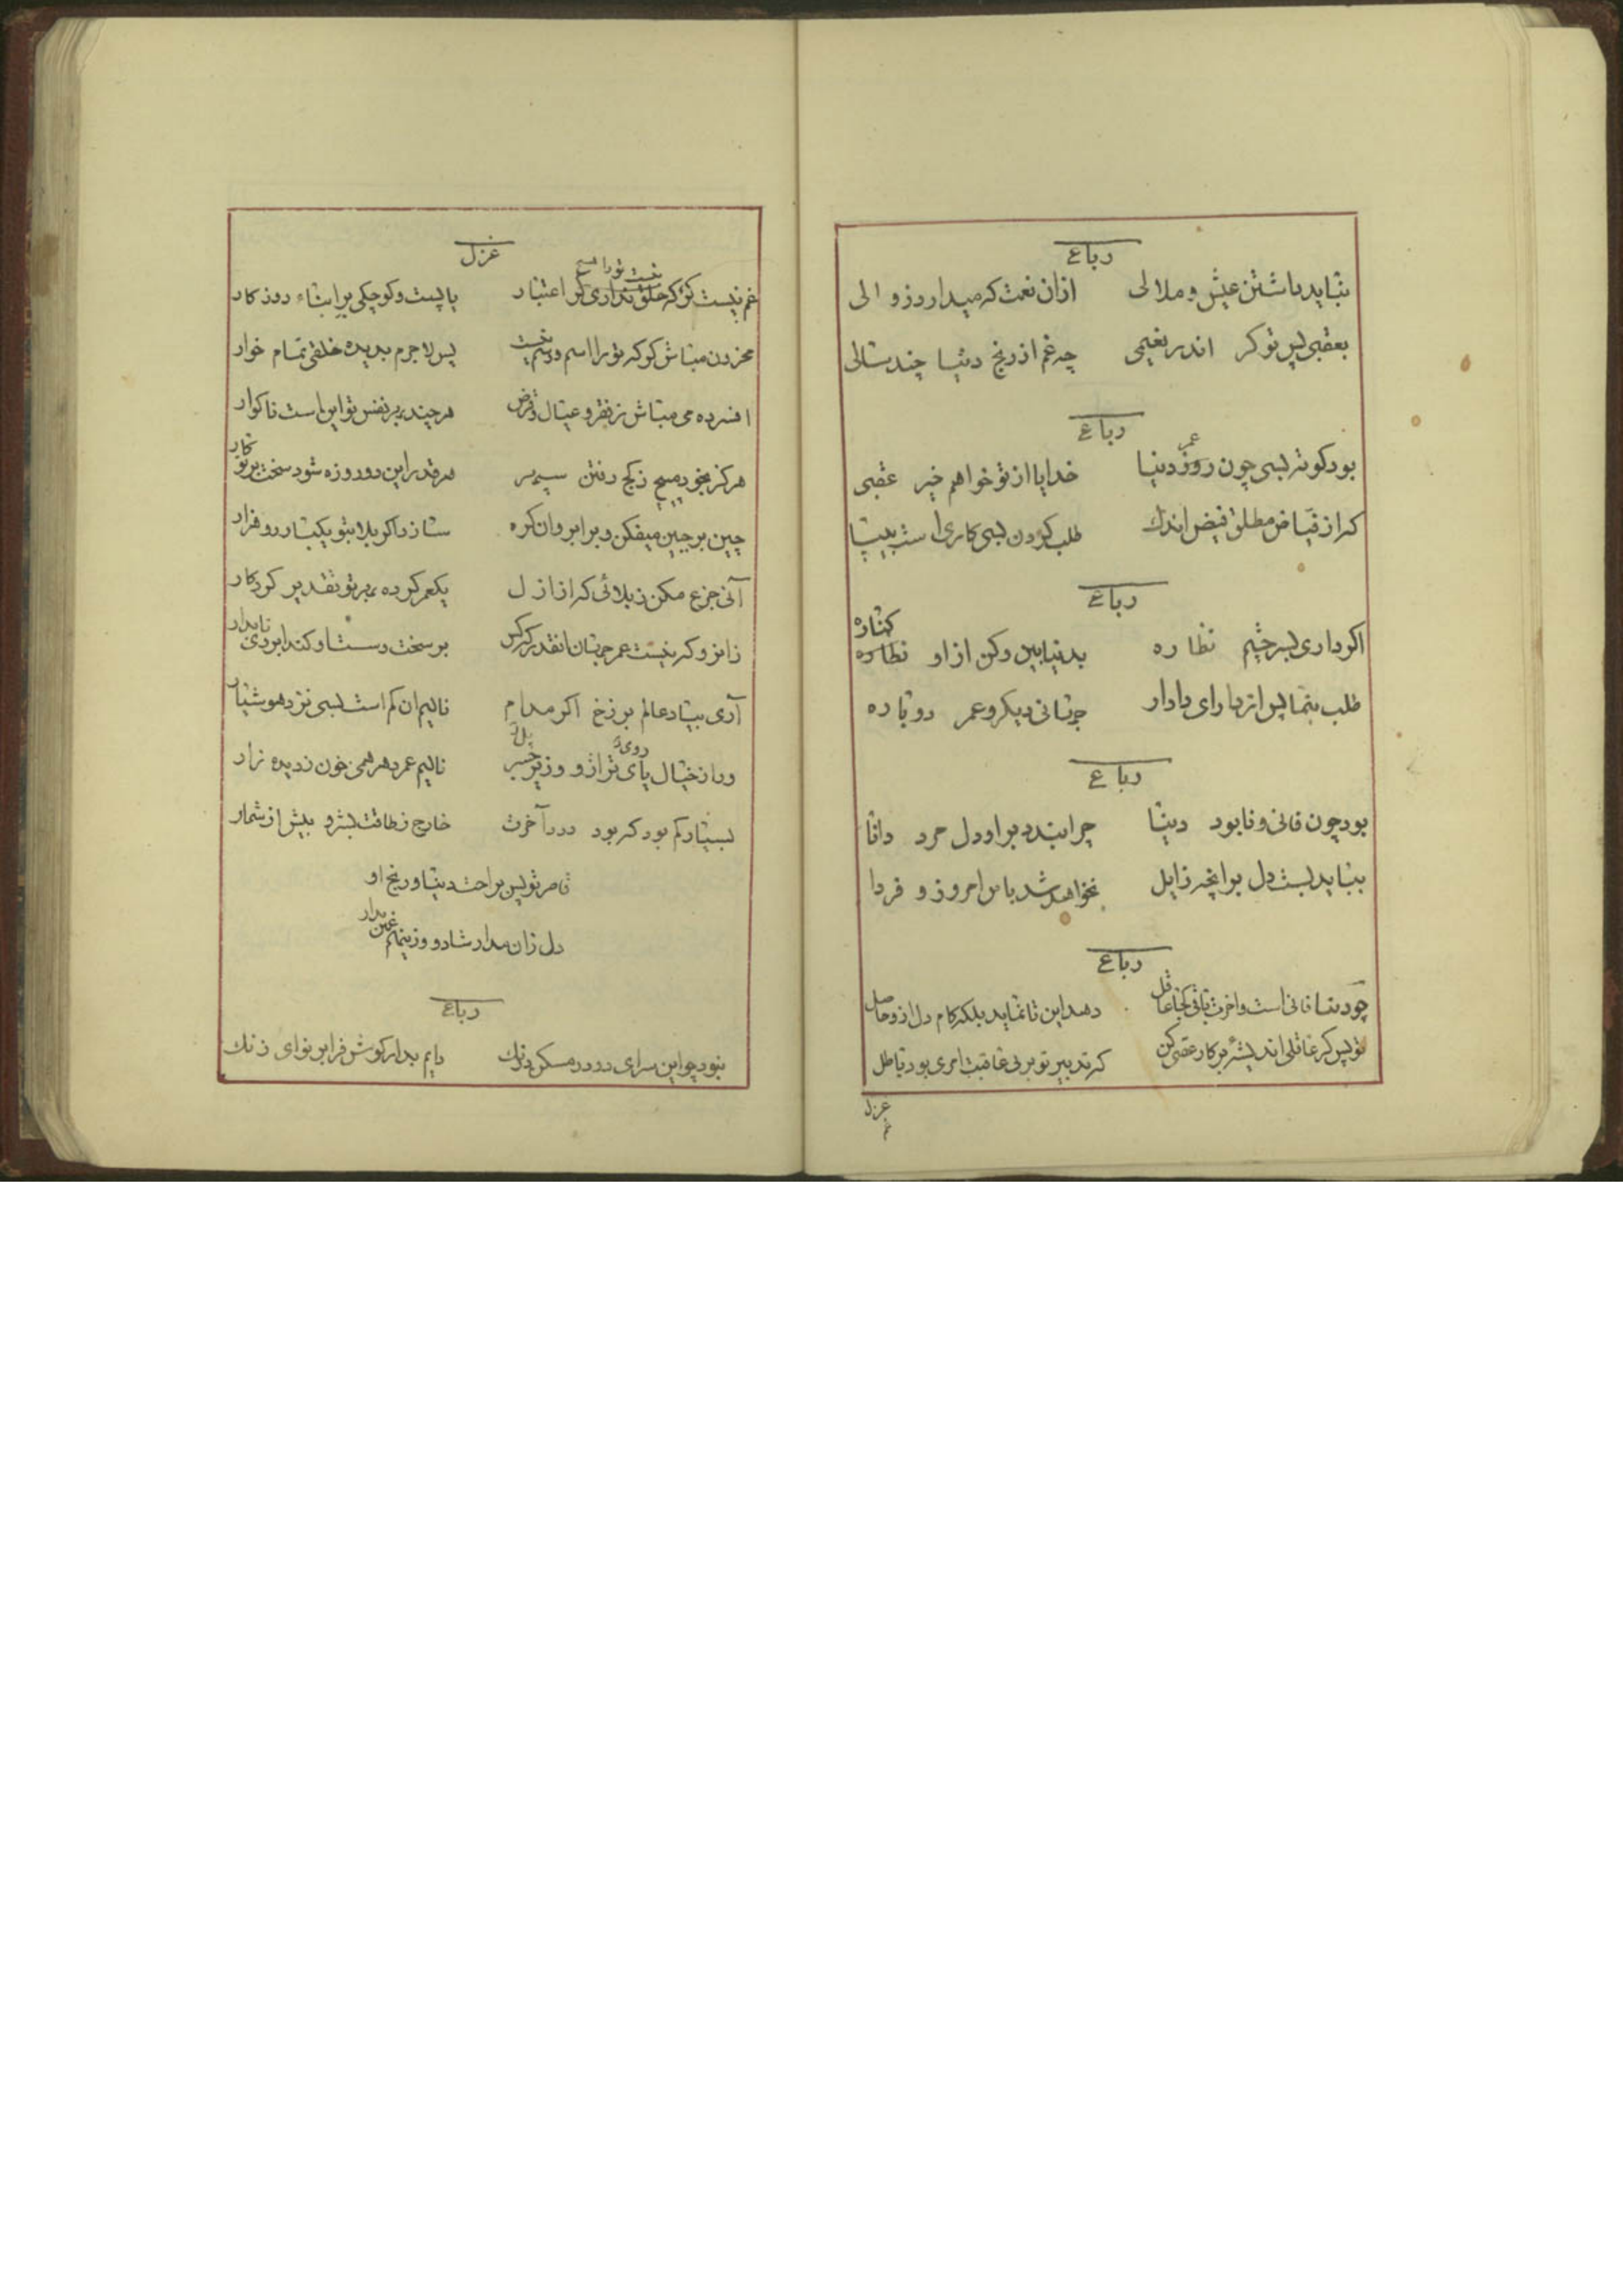 رباع
نباید داشتن عیش و ملالی ازان نعمت که میدارد زوالی
بعقبی پس تو کر اندر نعیمی چه غم از رنج دنیا چند سالی
رباع
بود کوته بسی چون روز عمر دنیا خدایا از تو خواهم خیر عقبی
که از فیاض مطلق فیض اندک طلب کردن بسی کاری است بیجا
رباع
اکر داری بسر چشم نظاره بدنیا بین وکن از او نظاره کناره
طلب بنما پس از دارای دادار جهانی دیکر و عمر دوباره
رباع
بود چون فانی و نابود دنیا چرا بندد براو دل مرد دانا
نباید بست دل بر انچه زایل نخواهد شد یا امروز و فردا
رباع
چو دنیا فانی است و اخرت باقی کجا عاقل دهد این تا نماید بلکه کام دل ازو حاصل
تو پس کر عاقلی اندیشهٔ بر کار عقبی کن که تدبیر تو بر بی عاقبت امری بود باطل
غزل
غم
غزل
غم نیست کر که خلق نداری کر اعتبار نیست تو را هیچ یا پست و کوچکی بر ابناء روزکار
محزون مباش کو که تو را اسم و رسم نیست پس لاجرم بدیده خلقی تمام خوار
افسرده می مباش ز فقر و عیال و قرض هرچند بر نفس تو این است ناکوار
هرکز بخود مپیچ ز کج رفتن سپهر هرقدر این دو روزه شود سخت بر تو کار
چین بر جبین میفکن و بر ابروان کره سازد اکر بلا بتو یکبار رو فزار
آنی جزع مکن ز بلائی که از ازل یکعمر کرده بر تو تقدیر کردکار
زانرو که نیست عمر جهان انقدر که کس بر سخت و سست او کند ابرودی تابدار
آری بیاد عالم برزخ اکر مدام نالیم ان کم است بسی نزد هوشیار
ور از خیال پای ترازو و زیر جسر روی پل نالیم عمر دهر همی خون ز دیده زار
بسیار کم بود که بود درد آخرت خارج ز طاقت بشر و بیش از شمار
قاصر تو پس براحت دنیا و رنج او
دل زان مدار شاد و وزینهم غمین مدار
رباع
نبود چو این سرای دو در مسکن درنک دایم بدار کوش فرا بر نوای زنک